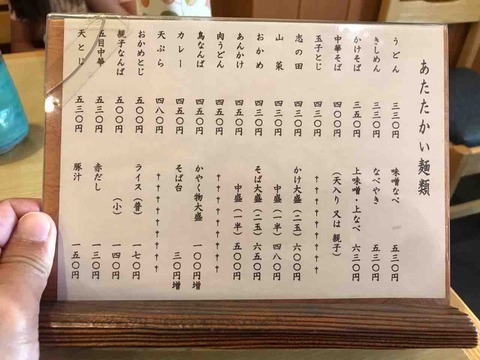 あたたかい麺類
うどん 三三〇円
きしめん 三三〇円
かけそば 三五〇円
中華そば 四〇〇円
玉子とじ 四三〇円
志の田 四三〇円
山菜 四三〇円
おかめ 四三〇円
あんかけ 四三〇円
肉うどん 四五〇円
鳥なんば 四五〇円
カレー 四五〇円
天ぷら 四八〇円
おかめとじ 五〇〇円
親子なんば 五〇〇円
五目中華 五三〇円
天とじ 五三〇円
味噌なべ 五三〇円
なべやき 五三〇円
上味噌・上なべ 六三〇円
(天入り又は親子)
かけ大盛(二玉) 六〇〇円
中盛(一半) 四八〇円
そば大盛(二玉) 六五〇円
中盛(一半) 五〇〇円
かやく物大盛 一〇〇円増
そば台 三〇円増
ライス(普) 一七〇円
(小) 一四〇円
赤だし 一三〇円
豚汁 一五〇円